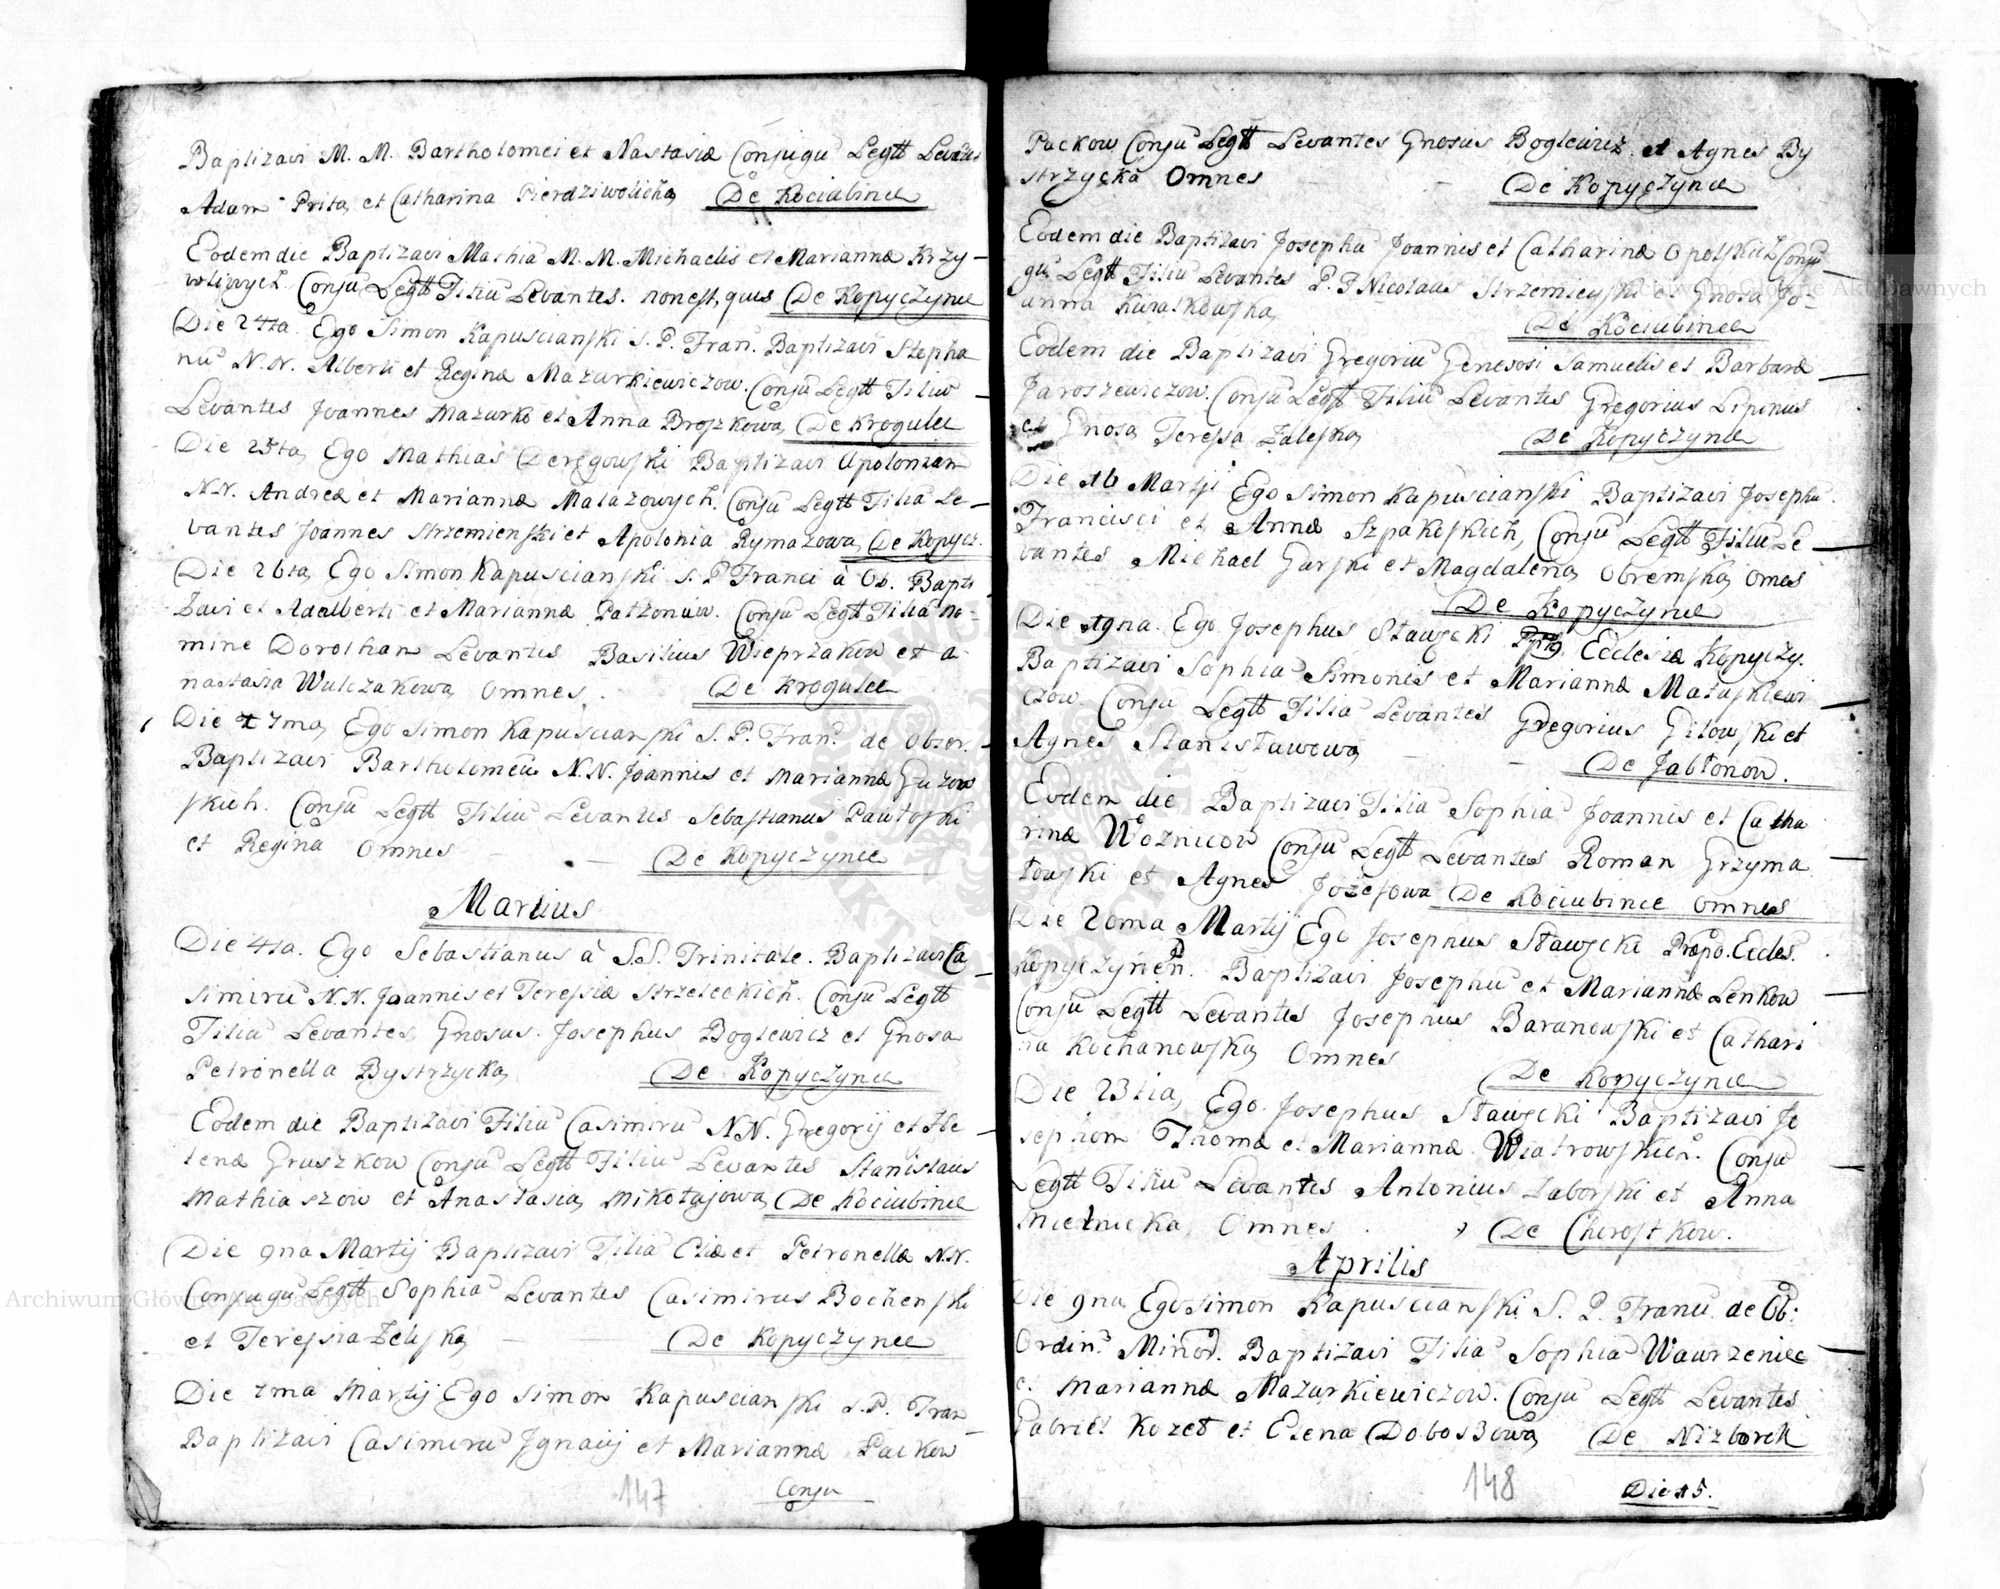 Baptizavi M. M. Bartholomei et Nastasiæ Conjugū Legtt Levātes
Adam Prita et Catharina Pierdziwolicha De Kociubince
Eodem die Baptizavi Mathiā M. M. Michaelis et Mariannæ Krzy-
wliwych Conjū Legtt Filiū Levantes. non est, quis De Kopyczynce
Die 24ta. Ego Simon Kapuscianski S. P. Fran. Baptizavi Stepha
nū N. N. Alberti et Reginæ Mazurkiewiczow. Conjū Legtt Filiū
Levantes Joannes Mazurko et Anna Broszkowa De Krogulce
Die 25ta Ego Mathias Deręgowski Baptizavi Apoloniam
N.N. Andreæ et Mariannæ Malazowych. Conjū Legtt Filiā Le-
vantes Joannes Strzemienski et Apolonia Rymazowa De Kopycz.
Die 26ta Ego Simon Kapuscianski S. P Franci à Ob. Bapti
zavi et Adalberti et Mariannæ Patzoniūw. Conjū Legtt Filiā no-
mine Dorothan Levantes Basilius Wieprzakow et A
nastasia Wulczakowa Omnes. De Krogulce
Die 27ma Ego Simon Kapuscianski S. P. Fran. de Obser.
Baptizavi Bartholomeū N.N. Joannis et Mariannæ Guzow
skich. Conjū Legtt Filiū Levantes Sebastianus Pawłoski
et Regina Omnes De Kopyczynce
Martius
Die 4ta. Ego Sebastianus à S.S. Trinitate. Baptizavi Ca
simirū N.N. Joannis et Teressiæ Strzeleckich. Conjū Legtt
Filiū Levantes Gnosus Josephus Boglewicz et Gnosa
Petronella Bystrzycka De Kopyczynce
Eodem die Baptizavi Filiū Casimirū N.N. Gregorij et He
lenæ Gruszkow Conjū Legtt Filiū Levantes Stanislaus
Mathiaszow et Anastasia Mikołajowa De Kociubince
Die 9na Martij Baptizavi Filiā Eliæ et Petronellæ N.N.
Conjugū Legtt Sophiā Levantes Casimirus Bochenski
et Teressia Zeleska De Kopyczynce
Die 7ma Martij Ego Simon Kapuscianski S. P. Fran
Baptizavi Casimirū Jgnatij et Mariannæ Packow
147 Conju
Packow Conjū Legtt Levantes Gnosus Boglewicz et Agnes By
strzycka Omnes De Kopyczynce
Eodem die Baptizavi Josephū Joannis et Catharinæ Opolskich Conju
gū Legtt Filiū Levantes P. F Nicolaus Strzemieyski et Gnosa Jo-
anna Kuratkowska
De Kociubince
Eodem die Baptizavi Gregoriū Generosi Samuelis et Barbaræ
Jaroszewiczow. Conjū Legtt Filiū Levantes Gregorius Lipinus
et Gnosa Teressa Zaleska De Kopyczynce
Die 16 Martji Ego Simon Kapuscianski Baptizavi Josephū
Francisci et Annæ Szpakoskich, Conjū Legtt Filiū Le
vantes Michael Garski et Magdalena Obremska Omes
De Kopyczynce
Die 19na. Ego Josephus Stawecki Ppłtg Ecclesiæ Kopyczy.
Baptizavi Sophiā Simonis et Mariannæ Matuskiewi
czow. Conjū Legtt Filiā Levantes Gregorius Gitowski et
Agnes Stanisławowa De Jabłonow.
Eodem die Baptizavi Filiā Sophiā Joannis et Catha
rinæ Woznicow Conjū Legtt Levantes Roman Grzyma
łowski et Agnes Jozefowa De Kociubince omnes
Die 20ma Martij Ego Josephus Stawecki Præpo. Eccles.
Kopyczynen. Baptizavi Josephū et Mariannæ Lenkow
Conjū Legtt Levantes Josephus Baranowski et Cathari
na Kochanowska Omnes
De Kopyczynce
Die 23tia Ego Josephus Stawecki Baptizavi Jo
sephom Thomæ et Mariannæ Wiatrowskich. Conjū
Legtt Filiū Levantes Antonius Zaborski et Anna
Mielnicka Omnes. De Chorostkow.
Aprilis
Die 9na Ego Simon Kapuscianski S. P. Franū de Ob:
Ordin. Minor. Baptizavi Filiā Sophiā Wawrzeniec
e. Mariannæ Mazurkiewiczow. Conjū Legtt Levantes
Gabriel Kozet et Elena Doboszowa De Nizborek
148 Die 15.
Archiwum Główne Akt Dawnych
Archiwum Główne Akt Dawnych